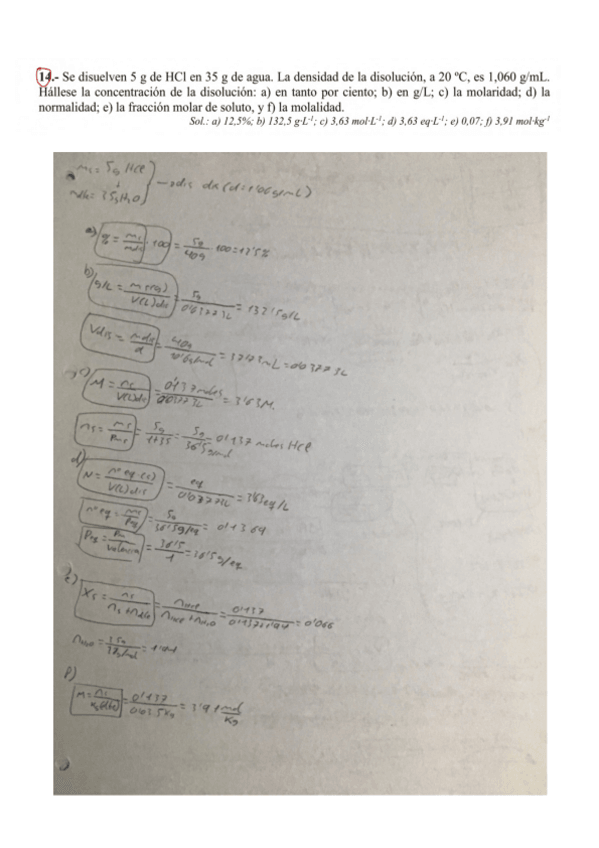 14.- Se disuelven 5 g de HCl en 35 g de agua. La densidad de la disolución, a 20 ºC, es 1,060 g/mL.
Hállese la concentración de la disolución: a) en tanto por ciento; b) en g/L; c) la molaridad; d) la
normalidad; e) la fracción molar de soluto, y f) la molalidad.
Sol.: a) 12,5%; b) 132,5 g·L⁻¹; c) 3,63 mol·L⁻¹; d) 3,63 eq·L⁻¹; e) 0,07; f) 3,91 mol·kg⁻¹
ms = 5g HCl
35g H2O → dis
a) % = ms/mdis · 100 = 5g/40g · 100 = 12'5%
b) g/L = m(g)/V(L)dis = 5g/0'03773L = 132'5g/L
Vdis = mdis/d = 40g = mL = 0'03773L
c) M = ns/V(L)dis = 0'137 moles/0'03773L = 3'63M.
ns = ms/Pms = 5g/1+35 = 5g/36'5g/mol = 0'137 moles HCl
d) N = nº eq (s)/V(L)dis = eq/0'03773L = 3'63eq/L
nº eq = ms/Peq = 5g/36'5g/eq =
Peq = Pm/valencia = 36'5/1 = 36'5g/eq
e) Xs = ns/ns + ndte = nHCl/nHCl + nH2O = 0'137/0'137+1'94 = 0'066
nH2O = 35g/18g/mol = 1'94
f) M = ns/kg(dte) = 0'137/0'035kg = 3'91 mol/kg